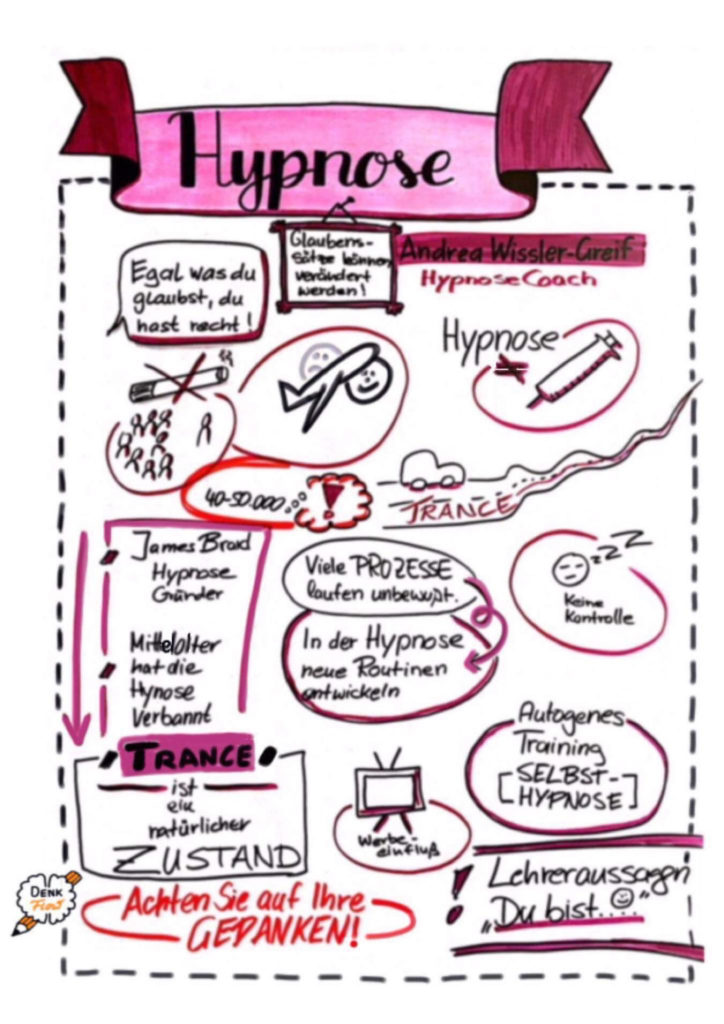 Hypnose
Glaubens-
sätze können
verändert
werden!
Andrea Wissler-Greif
HypnoseCoach
Egal was du
glaubst, du
hast recht!
Hypnose
40-50.000
!
TRANCE
James Braid
Hypnose
Gründer
Mittelolter
hat die
Hynose
Verbannt
Viele PROZESSE
laufen unbewußt.
In der Hypnose
neue Routinen
entwickeln
zzZ
Keine
Kontrolle
Autogenes
Training
[SELBST-
HYPNOSE]
TRANCE
ist
ein
natürlicher
ZUSTAND
Werbe-
einfluß
! Lehreraussagn
"Du bist...."
DENK
Achten Sie auf Ihre
GEDANKEN!